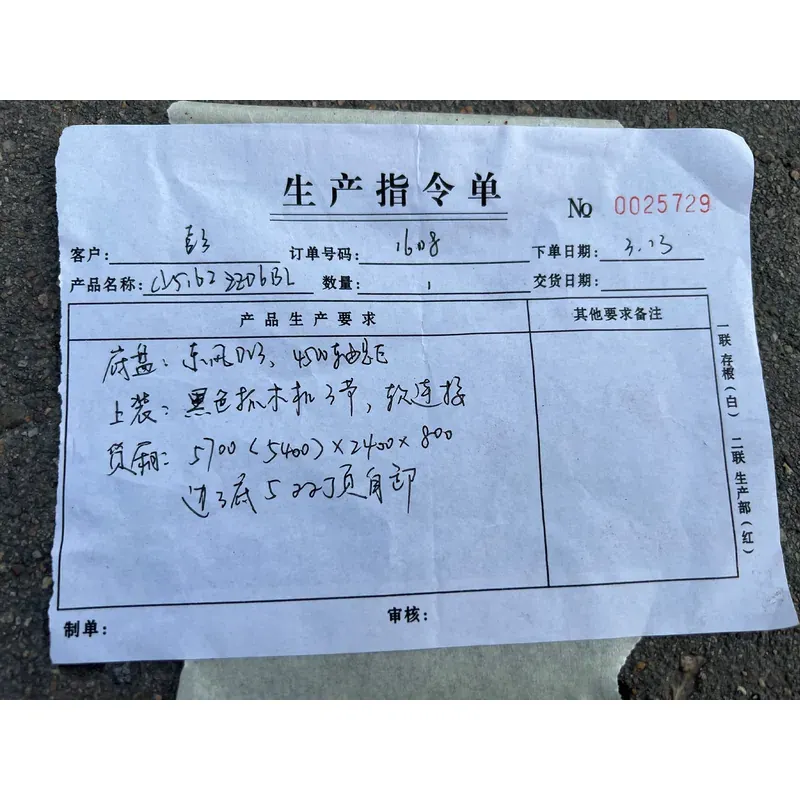 生产指令单
No 0025729
客户: 订单号码: 1608 下单日期: 3.13
产品名称: 数量: 1 交货日期:
产品生产要求 其他要求备注
底盘: 东风D13、4500轴距
上装: 黑色抓木机3节, 软连接
货厢: 5700(5400)×2400×800
边3底5
制单: 审核:
一联 存根(白) 二联 生产部(红)